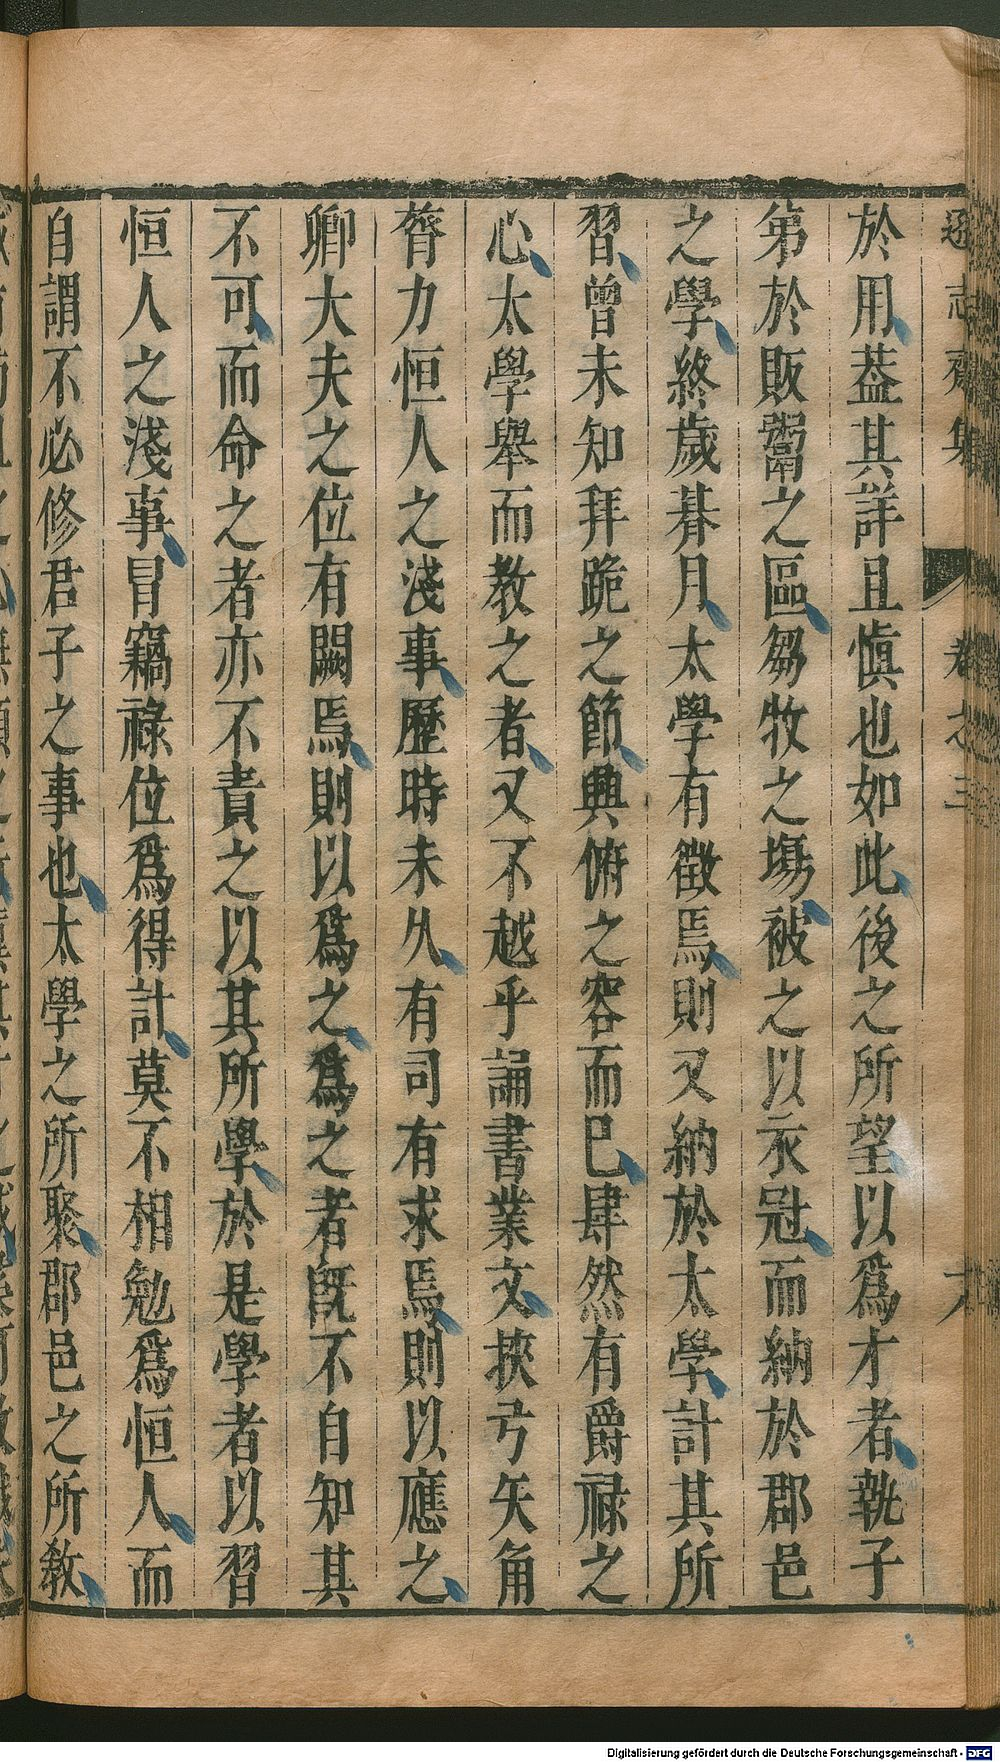 遜志齋集 卷之三 六
於用葢其詳且慎也如此後之所望以爲才者執子
弟於販鬻之區芻牧之塲被之以衣冠而納於郡邑
之學終歲朞月太學有徵焉則又納於太學計其所
習曾未知拜跪之節興俯之容而已肆然有爵祿之
心太學舉而教之者又不越乎誦書業文挾弓矢角
膂力恒人之淺事歷時未久有司有求焉則以應之
卿大夫之位有闕焉則以爲之爲之者旣不自知其
不可而命之者亦不責之以其所學於是學者以習
恒人之淺事冒竊祿位爲得計莫不相勉爲恒人而
自謂不必修君子之事也太學之所聚郡邑之所敎
Digitalisierung gefördert durch die Deutsche Forschungsgemeinschaft - DFG